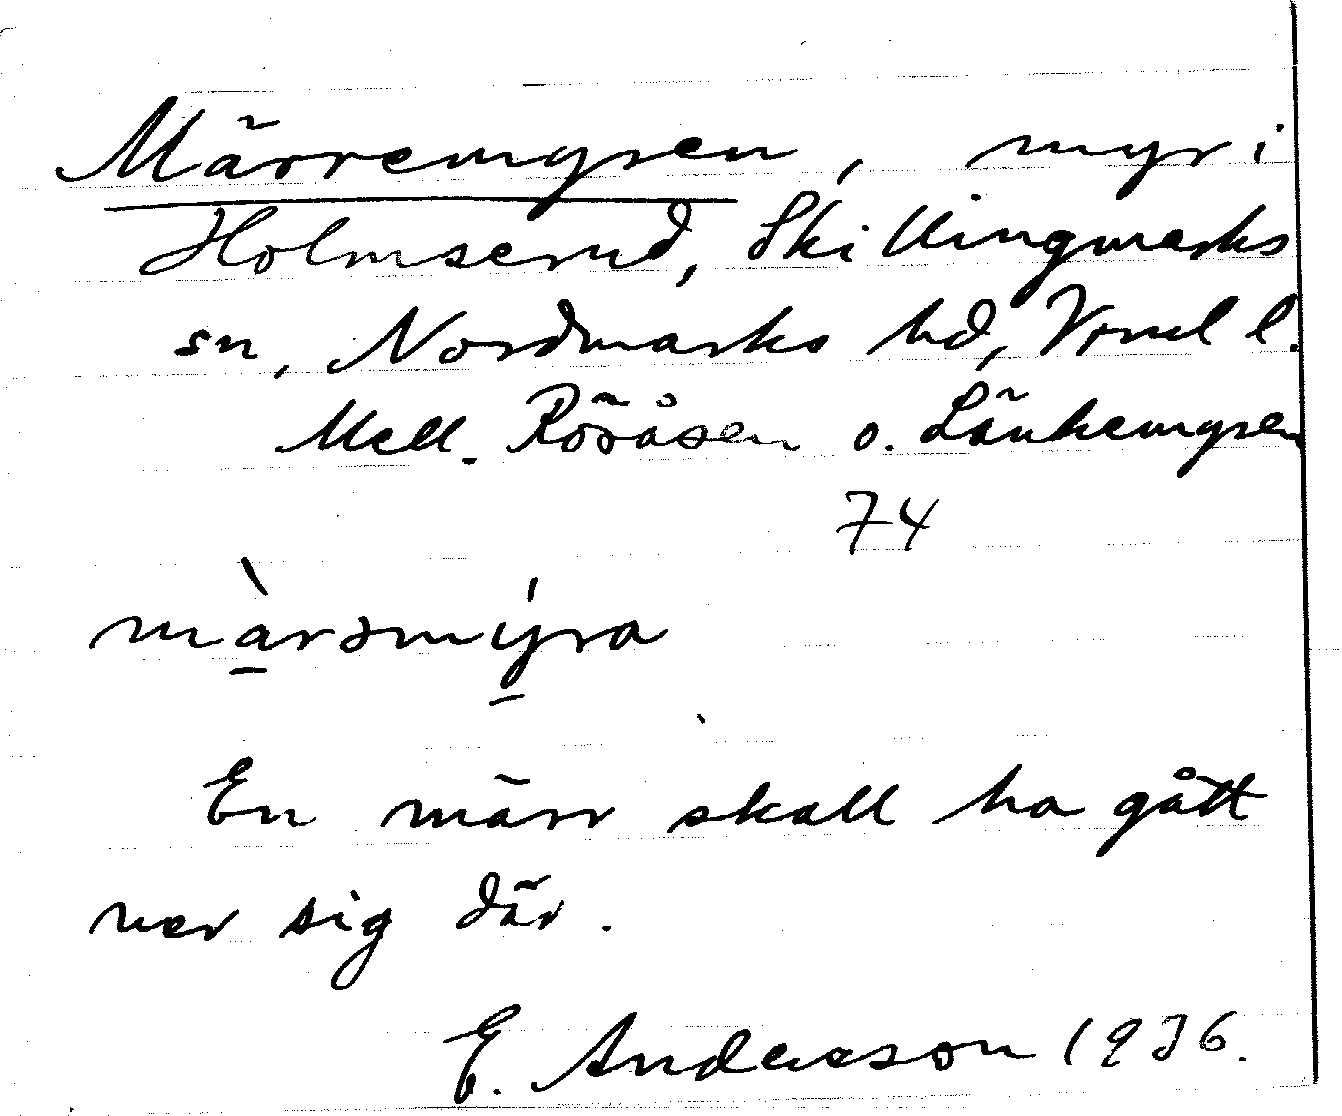 Märremyren, myr i
Holmserud, Skillingmarks
sn, Nordmarks hd, Vrml l.
Mell. Rööåsen o. Länkemyren
74
mä̀rəmýra
En märr skall ha gått
ner sig där.
E. Andersson 1936.